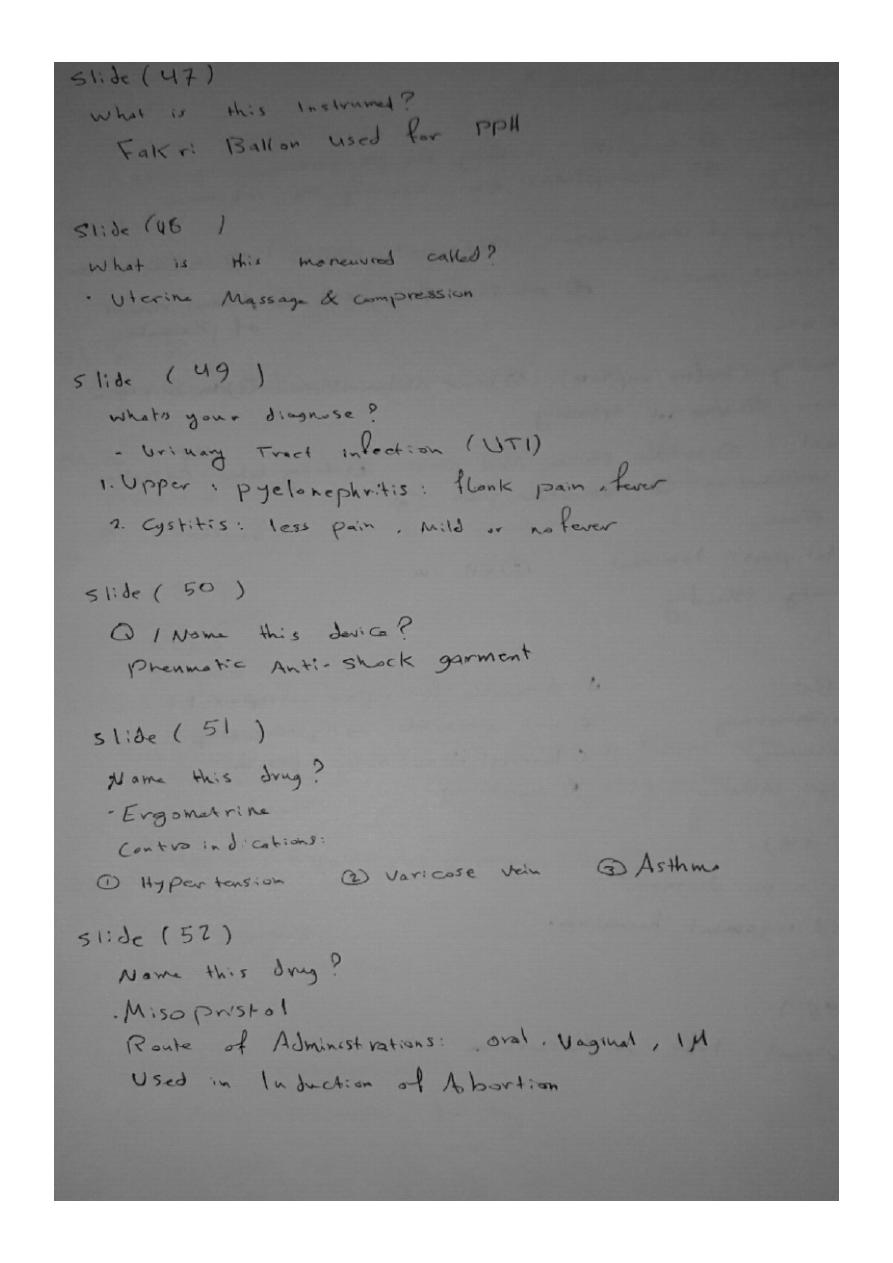 Slide (47)
What is this Instrumed?
Fakri Ballon used for PPH
Slide (48)
What is this maneuvred called?
• Uterine Massage & compression
Slide (49)
What's your diagnose?
- Urinary Tract infection (UTI)
1. Upper : pyelonephritis : flank pain, fever
2. Cystitis : less pain, Mild or no fever
Slide (50)
Q / Name this device?
Phenmatic Anti-Shock garment
Slide (51)
Name this drug?
- Ergometrine
Contraindications:
① Hypertension ② Varicose vein ③ Asthma
Slide (52)
Name this drug?
. Misopristol
Route of Administrations: oral, Vaginal, IM
Used in Induction of Abortion